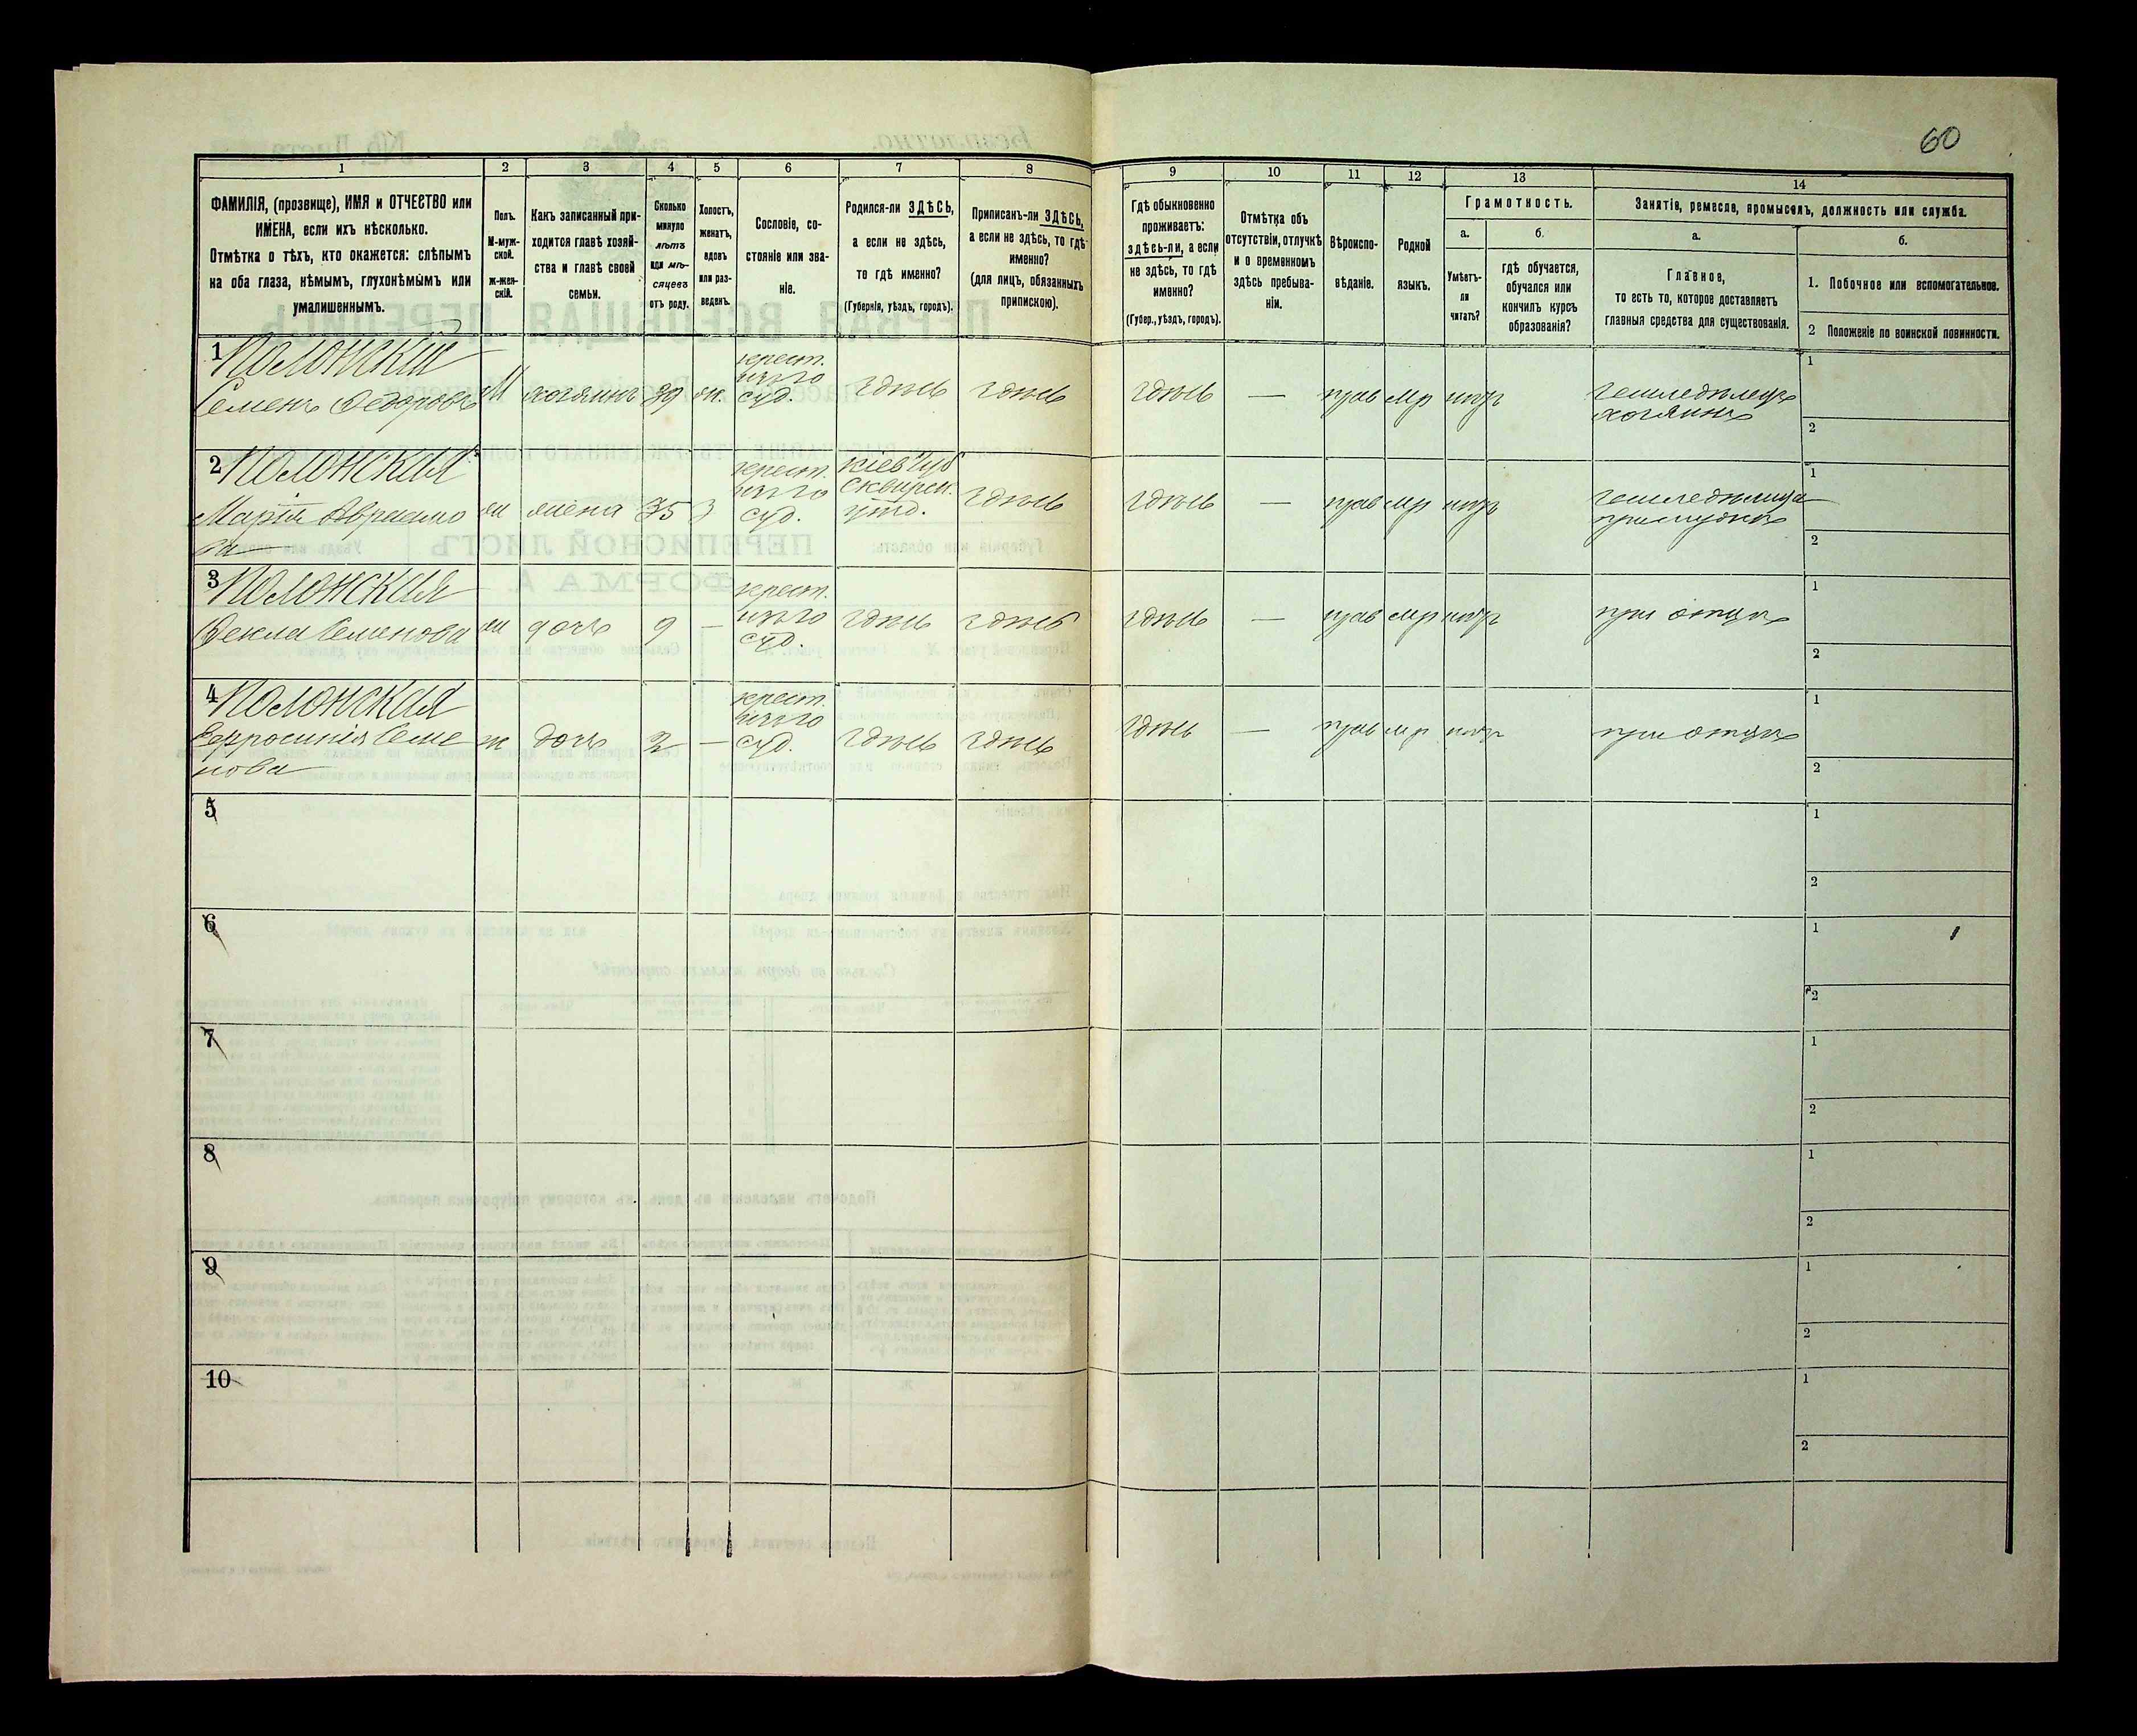 60
1 2 3 4 5 6 7 8 9 10 11 12 13 14
ФАМИЛІЯ, (прозвище), ИМЯ и ОТЧЕСТВО или ИМЕНА, если ихъ нѣсколько.
Отмѣтка о тѣхъ, кто окажется: слѣпымъ на оба глаза, нѣмымъ, глухонѣмымъ или умалишеннымъ.
Полъ. М-мужской. ж-женскій.
Какъ записанный приходится главѣ хозяйства и главѣ своей семьи.
Сколько минуло лѣтъ или мѣсяцевъ отъ роду.
Холостъ, женатъ, вдовъ или разведенъ.
Сословіе, состояніе или званіе.
Родился-ли ЗДѢСЬ, а если не здѣсь, то гдѣ именно? (Губернія, уѣздъ, городъ).
Приписанъ-ли ЗДѢСЬ, а если не здѣсь, то гдѣ именно? (для лицъ, обязанныхъ припискою).
Гдѣ обыкновенно проживаетъ: здѣсь-ли, а если не здѣсь, то гдѣ именно? (Губер., уѣздъ, городъ).
Отмѣтка объ отсутствіи, отлучкѣ и о временномъ здѣсь пребываніи.
Вѣроисповѣданіе.
Родной языкъ.
Грамотность.
а. Умѣетъ-ли читать?
б. гдѣ обучается, обучался или кончилъ курсъ образованія?
Занятіе, ремесло, промыселъ, должность или служба.
а. Главное, то есть то, которое доставляетъ главныя средства для существованія.
б.
1. Побочное или вспомогательное.
2 Положеніе по воинской повинности.
1 Полонскій
Семенъ Федоровъ М хозяинъ 39 ж. крест. суд. здѣсь здѣсь здѣсь — прав мр нѣтъ земледѣлецъ хозяинъ
1
2
2 Полонская
Марія Авриамова ж жена 35 з крест. суд. Кіев губ Сквирск. уѣзд. здѣсь здѣсь — прав мр нѣтъ земледѣлица при мужѣ
1
2
3 Полонская
Фекла Семенова ж дочь 9 — крест. суд. здѣсь здѣсь здѣсь — прав мр нѣтъ при отцѣ
1
2
4 Полонская
Ефросинія Семенова ж дочь 2 — крест. суд. здѣсь здѣсь здѣсь — прав мр нѣтъ при отцѣ
1
2
5
1
2
6
1
2
7
1
2
8
1
2
9
1
2
10
1
2